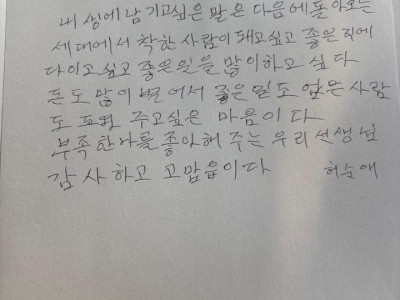 내 생에 남기고싶은 말은 다음에 돌아오는
세대에서 착한 사람이 돼고싶고 좋은 직에
다이고싶고 좋은일을 많이하고 싶다
돈도 많이 벌어서 좋은 일도 없는 사람
도 주고싶은 마음이다
부족한 나를 좋아해 주는 우리선생님
감사하고 고맙읍이다 허순애